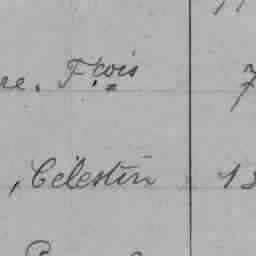 re. Fçois 7
, Célestin 13